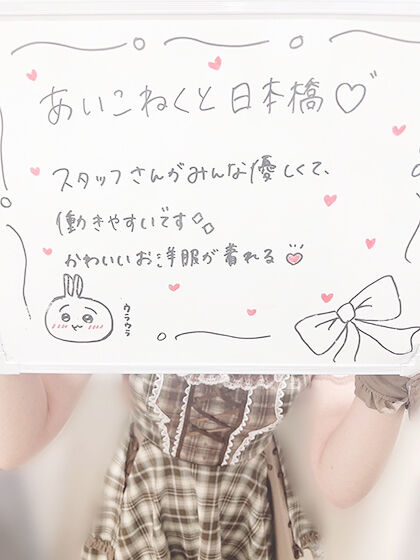 あいこねくと日本橋♡
スタッフさんがみんな優しくて、
働きやすいです
かわいいお洋服が着れる
ウラウラ